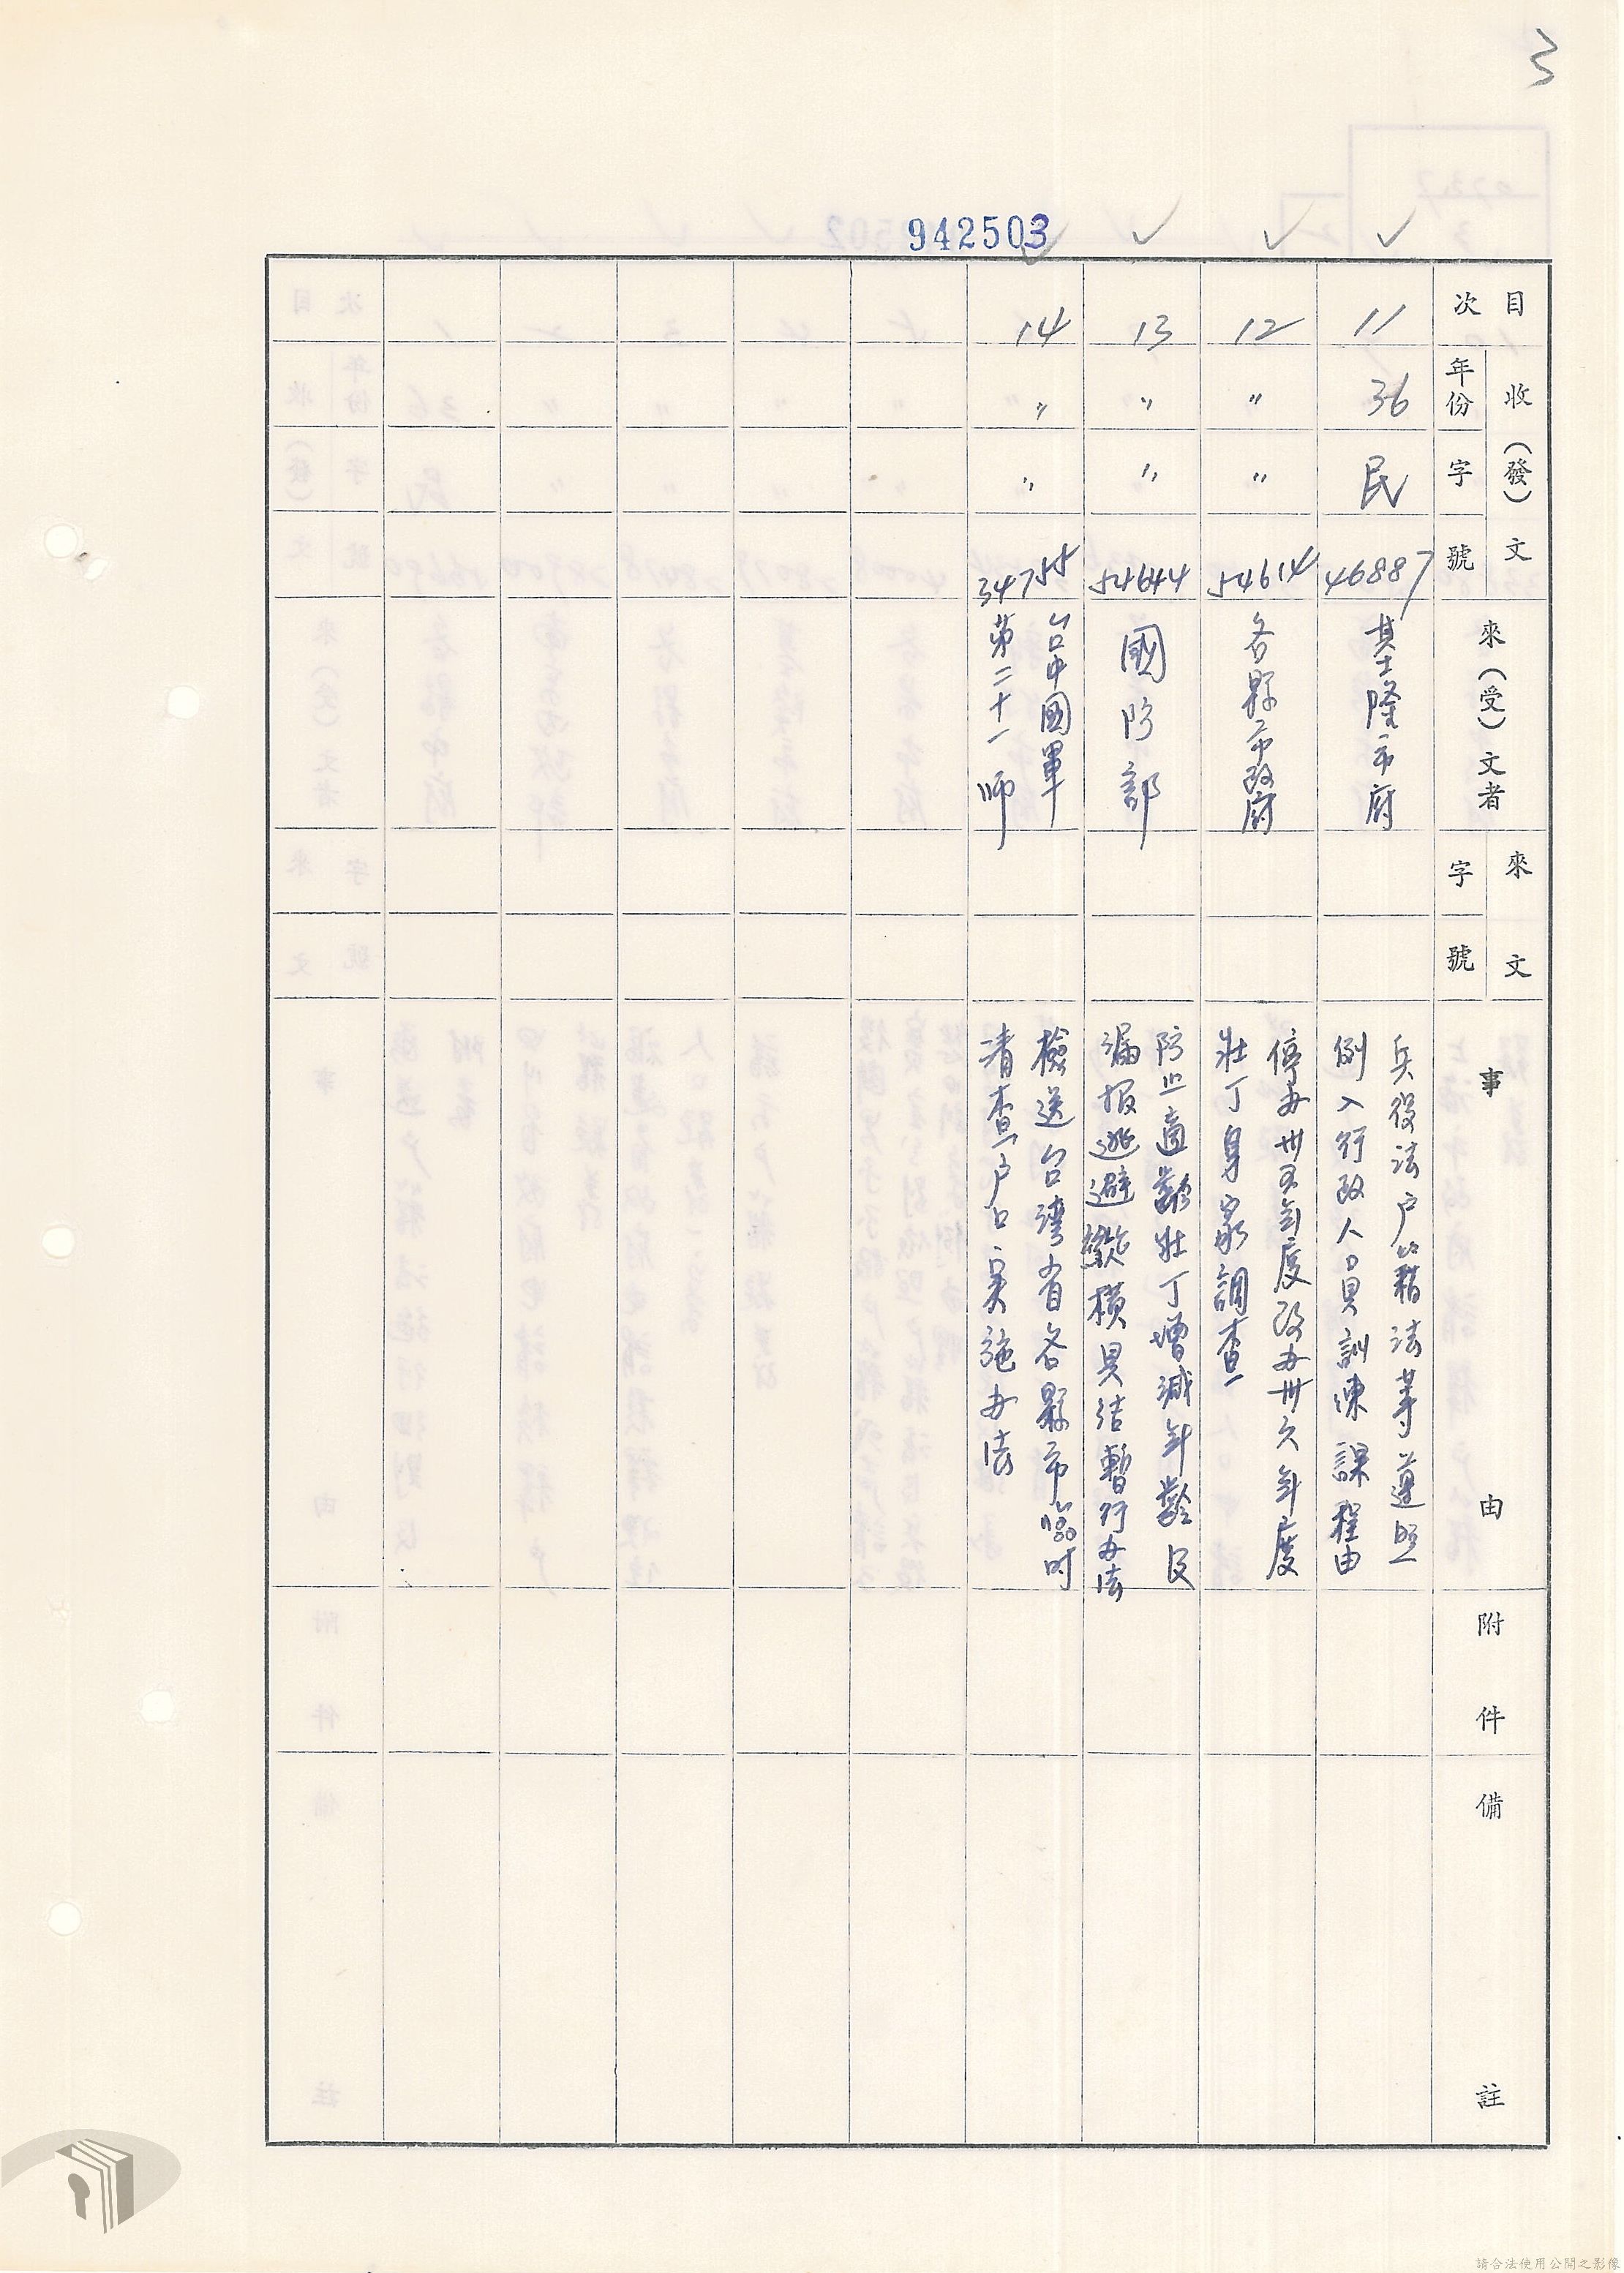 3
942503
目次
收(發)文
年份
字
號
來(受)文者
來文
字
號
事由
附件
備註
11
36
民
46887
基隆市府
兵役法戶籍法等遵照
例入行政人員訓練課程由
12
〃
〃
54614
各縣市政府
停办卅五年度改办卅六年度
壯丁身家調查
13
〃
〃
54644
國防部
防止適齡壯丁增減年齡及
漏报逃避懲獎具結暫行办法
14
〃
〃
34755
台中國軍
第二十一師
檢送台灣省各縣市臨時
清查户口实施办法
請合法使用公開之影像